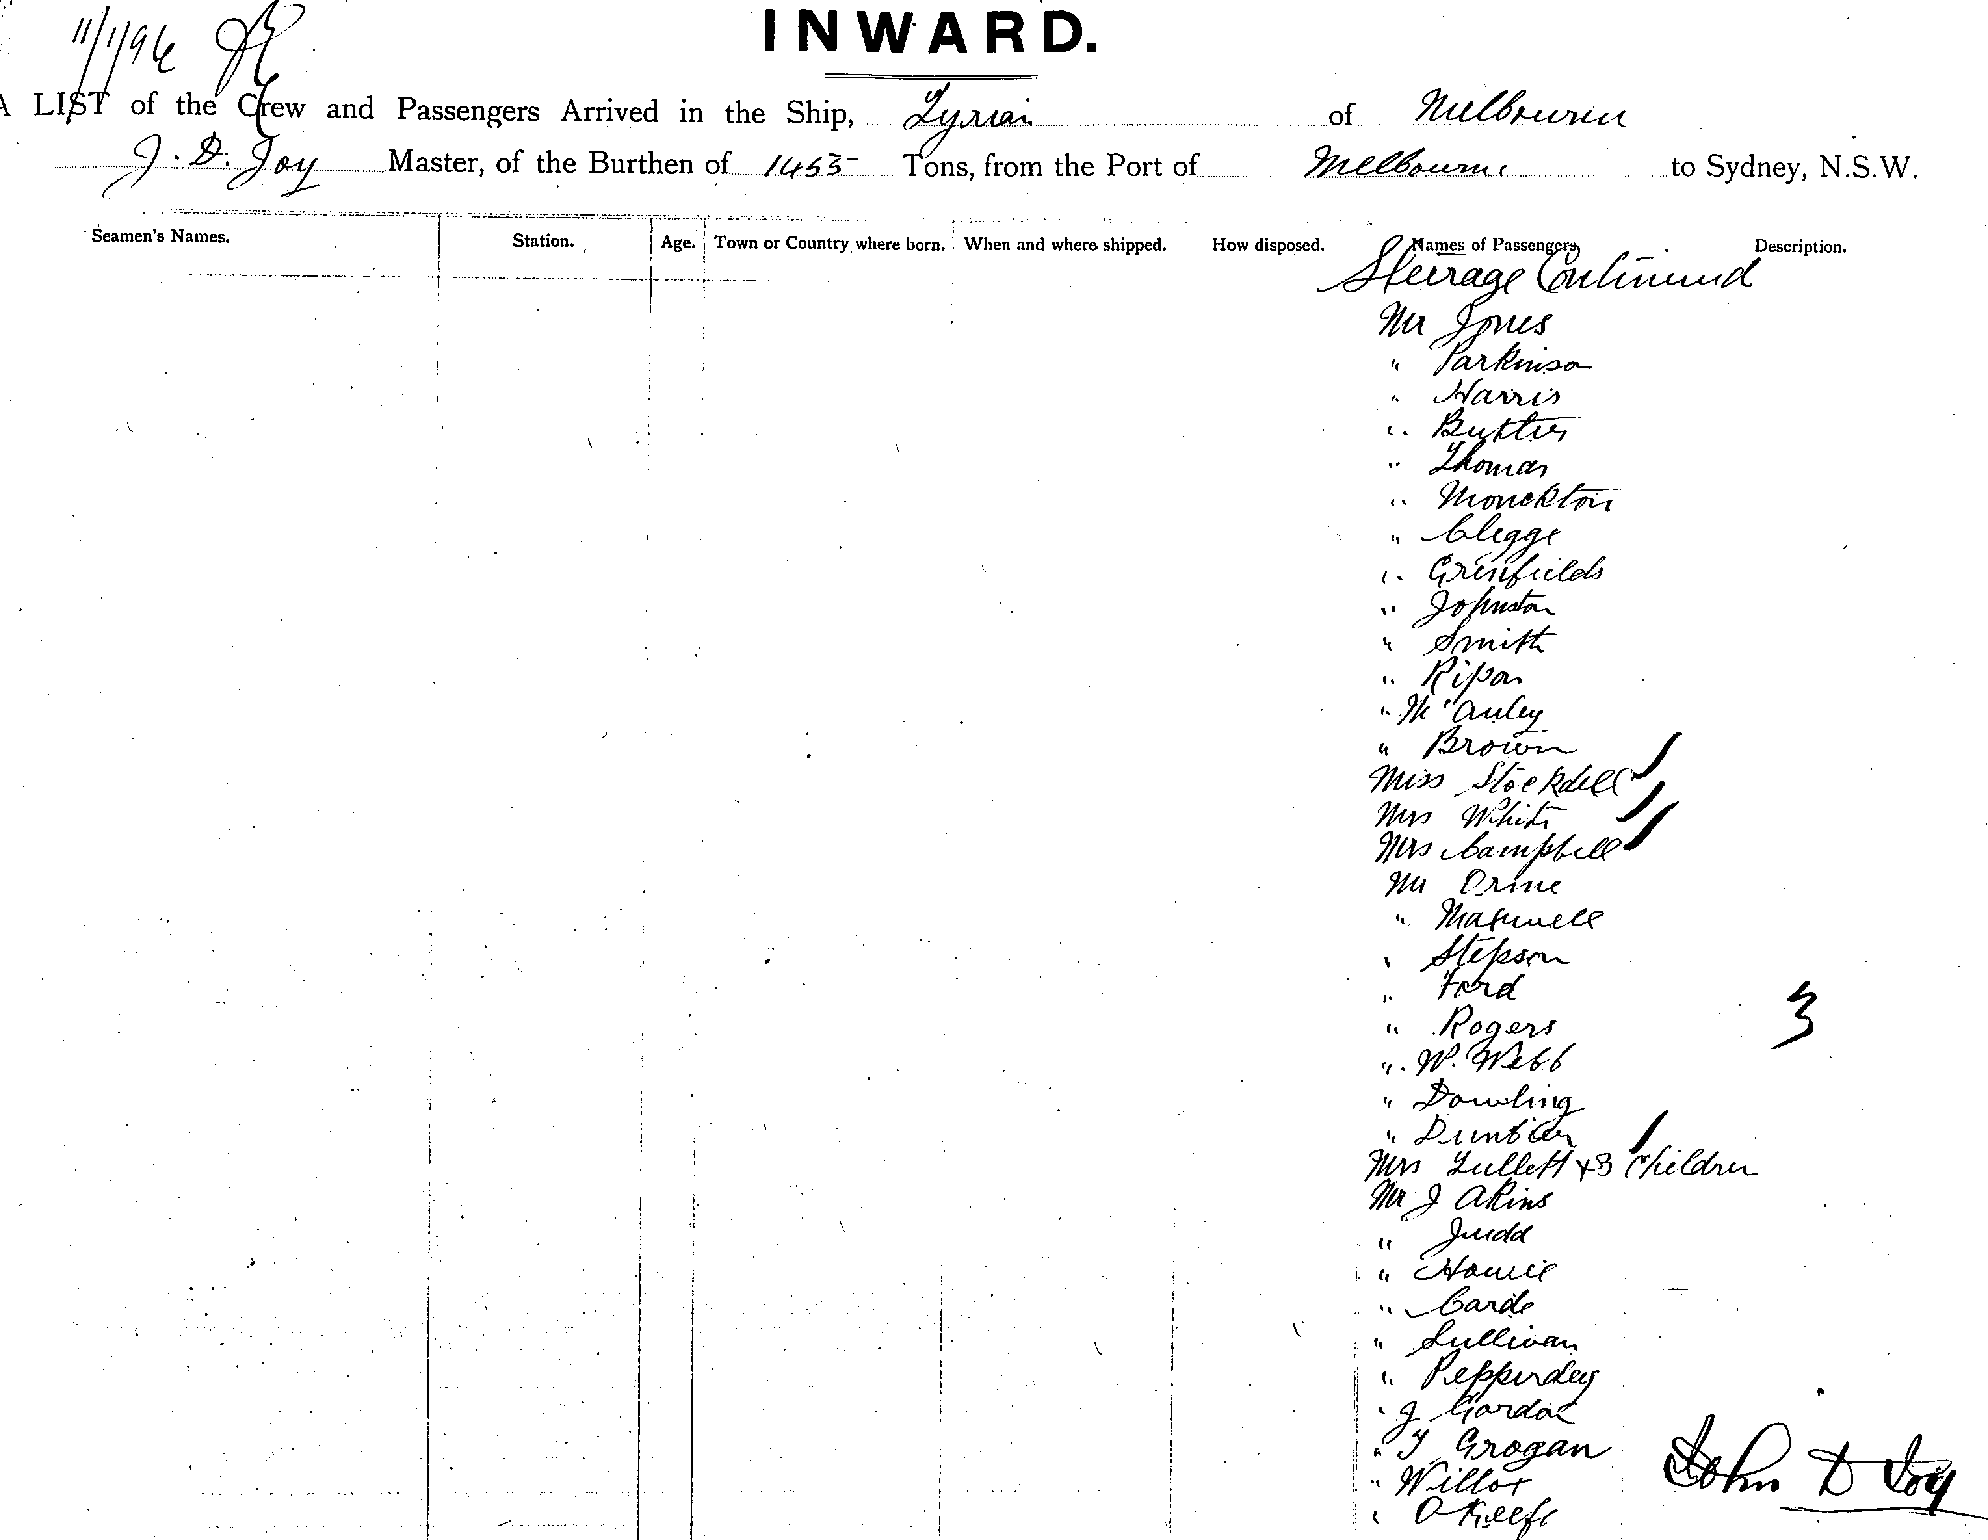 11/1/96
INWARD.
A LIST of the Crew and Passengers Arrived in the Ship, Tyrian of Melbourne
J. D. Joy Master, of the Burthen of 1455 Tons, from the Port of Melbourne to Sydney, N.S.W.
Seamen's Names. Station. Age. Town or Country where born. When and where shipped. How disposed. Names of Passengers Description.
Steerage Continued
Mr Jones
" Parkinson
" Harris
" Butler
" Thomas
" Monckton
" Clegge
" Grenfields
" Johnston
" Smith
" Ripon
" McAuley
" Brown
Miss Stockdell
Mrs White
Mrs Campbell
Mr Orme
" Maxwell
" Stepson
" Ford
" Rogers
3
" W. Webb
" Dowling
" Dunbar
Mrs Tullett + 3 Children
Mr J Akins
" Judd
" Howie
" Carde
" Sullivan
" Pepperdey
" J Gordon
" T Grogan
" Willox
" O'Keefe
John D Joy